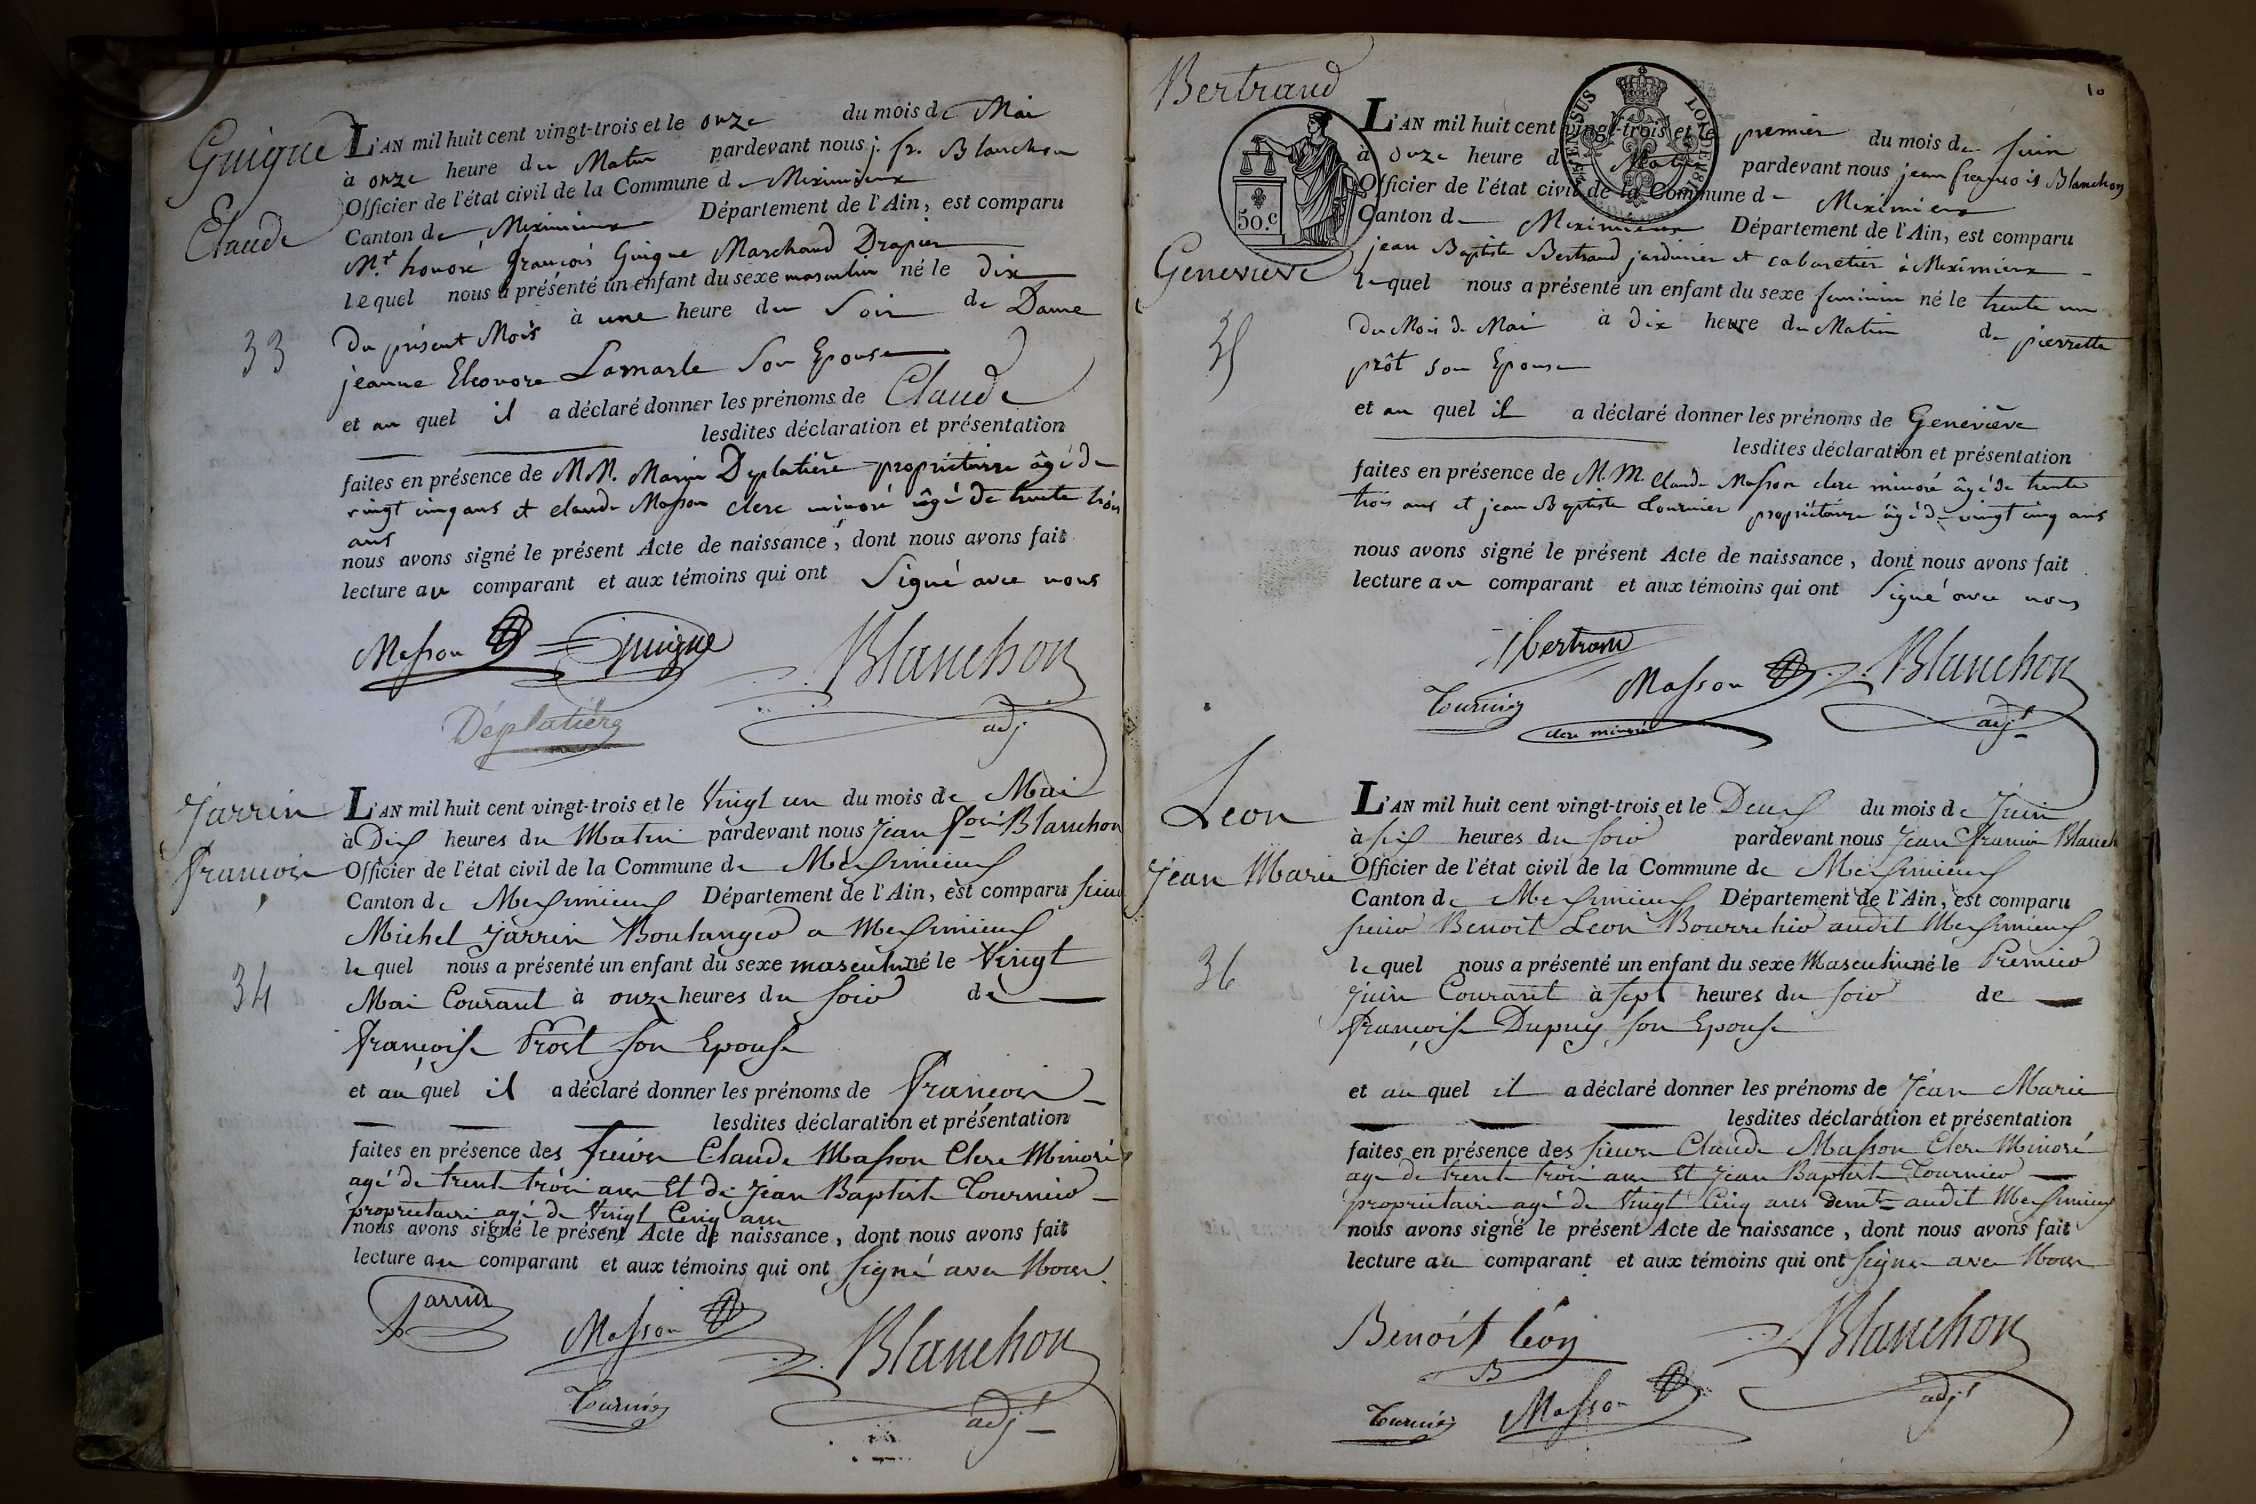 Guigue
Claude
33
L'AN mil huit cent vingt-trois et le onze du mois de Mai
à onze heure du Matin pardevant nous j. fr. Blanchon
Officier de l'état civil de la Commune de Meximieux
Canton de Meximieux Département de l'Ain, est comparu
Mr. honoré françois Guigue Marchand Drapier
lequel nous a présenté un enfant du sexe masculin né le dix
du présent Mois à une heure du Soir de Dame
jeanne Eleonore Lamarle Son Epouse
et au quel il a déclaré donner les prénoms de Claude
lesdites déclaration et présentation
faites en présence de MM. Marin Deplatière propriétaire âgé de
vingt cinq ans et claude Masson clerc minoré âgé de trente trois
ans
nous avons signé le présent Acte de naissance, dont nous avons fait
lecture au comparant et aux témoins qui ont Signé avec nous
Masson Guigue Blanchon
Déplatière adj
Jarrin
françois
34
L'AN mil huit cent vingt-trois et le Vingt un du mois de Mai
à Dix heures du Matin pardevant nous Jean fois Blanchon
Officier de l'état civil de la Commune de Meximieux
Canton de Meximieux Département de l'Ain, est comparu sieur
Michel Jarrin Boulanger a Meximieux
le quel nous a présenté un enfant du sexe masculin né le Vingt
Mai Courant à onze heures du soir de
françoise Prost son Epouse
et au quel il a déclaré donner les prénoms de françois
lesdites déclaration et présentation
faites en présence des sieurs Claude Masson Clerc Minoré
agé de trente trois ans Et de Jean Baptiste Tournier
propriétaire agé de Vingt Cinq ans
nous avons signé le présent Acte de naissance, dont nous avons fait
lecture au comparant et aux témoins qui ont signé avec Nous
Jarrin
Masson Blanchon
Tournier adjt
10
Bertrand
Geneviève
35
50.c
LOI DE 1816
L'AN mil huit cent vingt-trois et le premier du mois de Juin
à onze heure du Matin pardevant nous jean françois Blanchon
Officier de l'état civil de la Commune de Meximieux
Canton de Meximieux Département de l'Ain, est comparu
jean Baptiste Bertrand jardinier et cabaretier à Meximieux
lequel nous a présenté un enfant du sexe feminin né le trente un
du Mois de Mai à dix heure du Matin de pierrette
prôt son Epouse
et au quel il a déclaré donner les prénoms de Geneviève
lesdites déclaration et présentation
faites en présence de M.M. Claude Masson clerc minoré âgé de trente
trois ans et jean Baptiste Tournier propriétaire âgé de vingt cinq ans
nous avons signé le présent Acte de naissance, dont nous avons fait
lecture au comparant et aux témoins qui ont Signé avec nous
Bertrand
Tournier Masson Blanchon
clerc minoré adjt
Leon
Jean Marie
36
L'AN mil huit cent vingt-trois et le Deux du mois de Juin
à six heures du soir pardevant nous Jean françois Blanch
Officier de l'état civil de la Commune de Meximieux
Canton de Meximieux Département de l'Ain, est comparu
sieur Benoit Leon Bourrelier audit Meximieux
le quel nous a présenté un enfant du sexe Masculin né le Premier
Juin Courant à sept heures du soir de
françoise Dupuy son Epouse
et au quel il a déclaré donner les prénoms de Jean Marie
lesdites déclaration et présentation
faites en présence des sieurs Claude Masson Clerc Minoré
age de trente trois ans Et Jean Baptiste Tournier
propriétaire agé de Vingt Cinq ans demt audit Meximieux
nous avons signé le présent Acte de naissance, dont nous avons fait
lecture au comparant et aux témoins qui ont signés avec Nous
Benoit léon Blanchon
B
Tournier Masson adjt